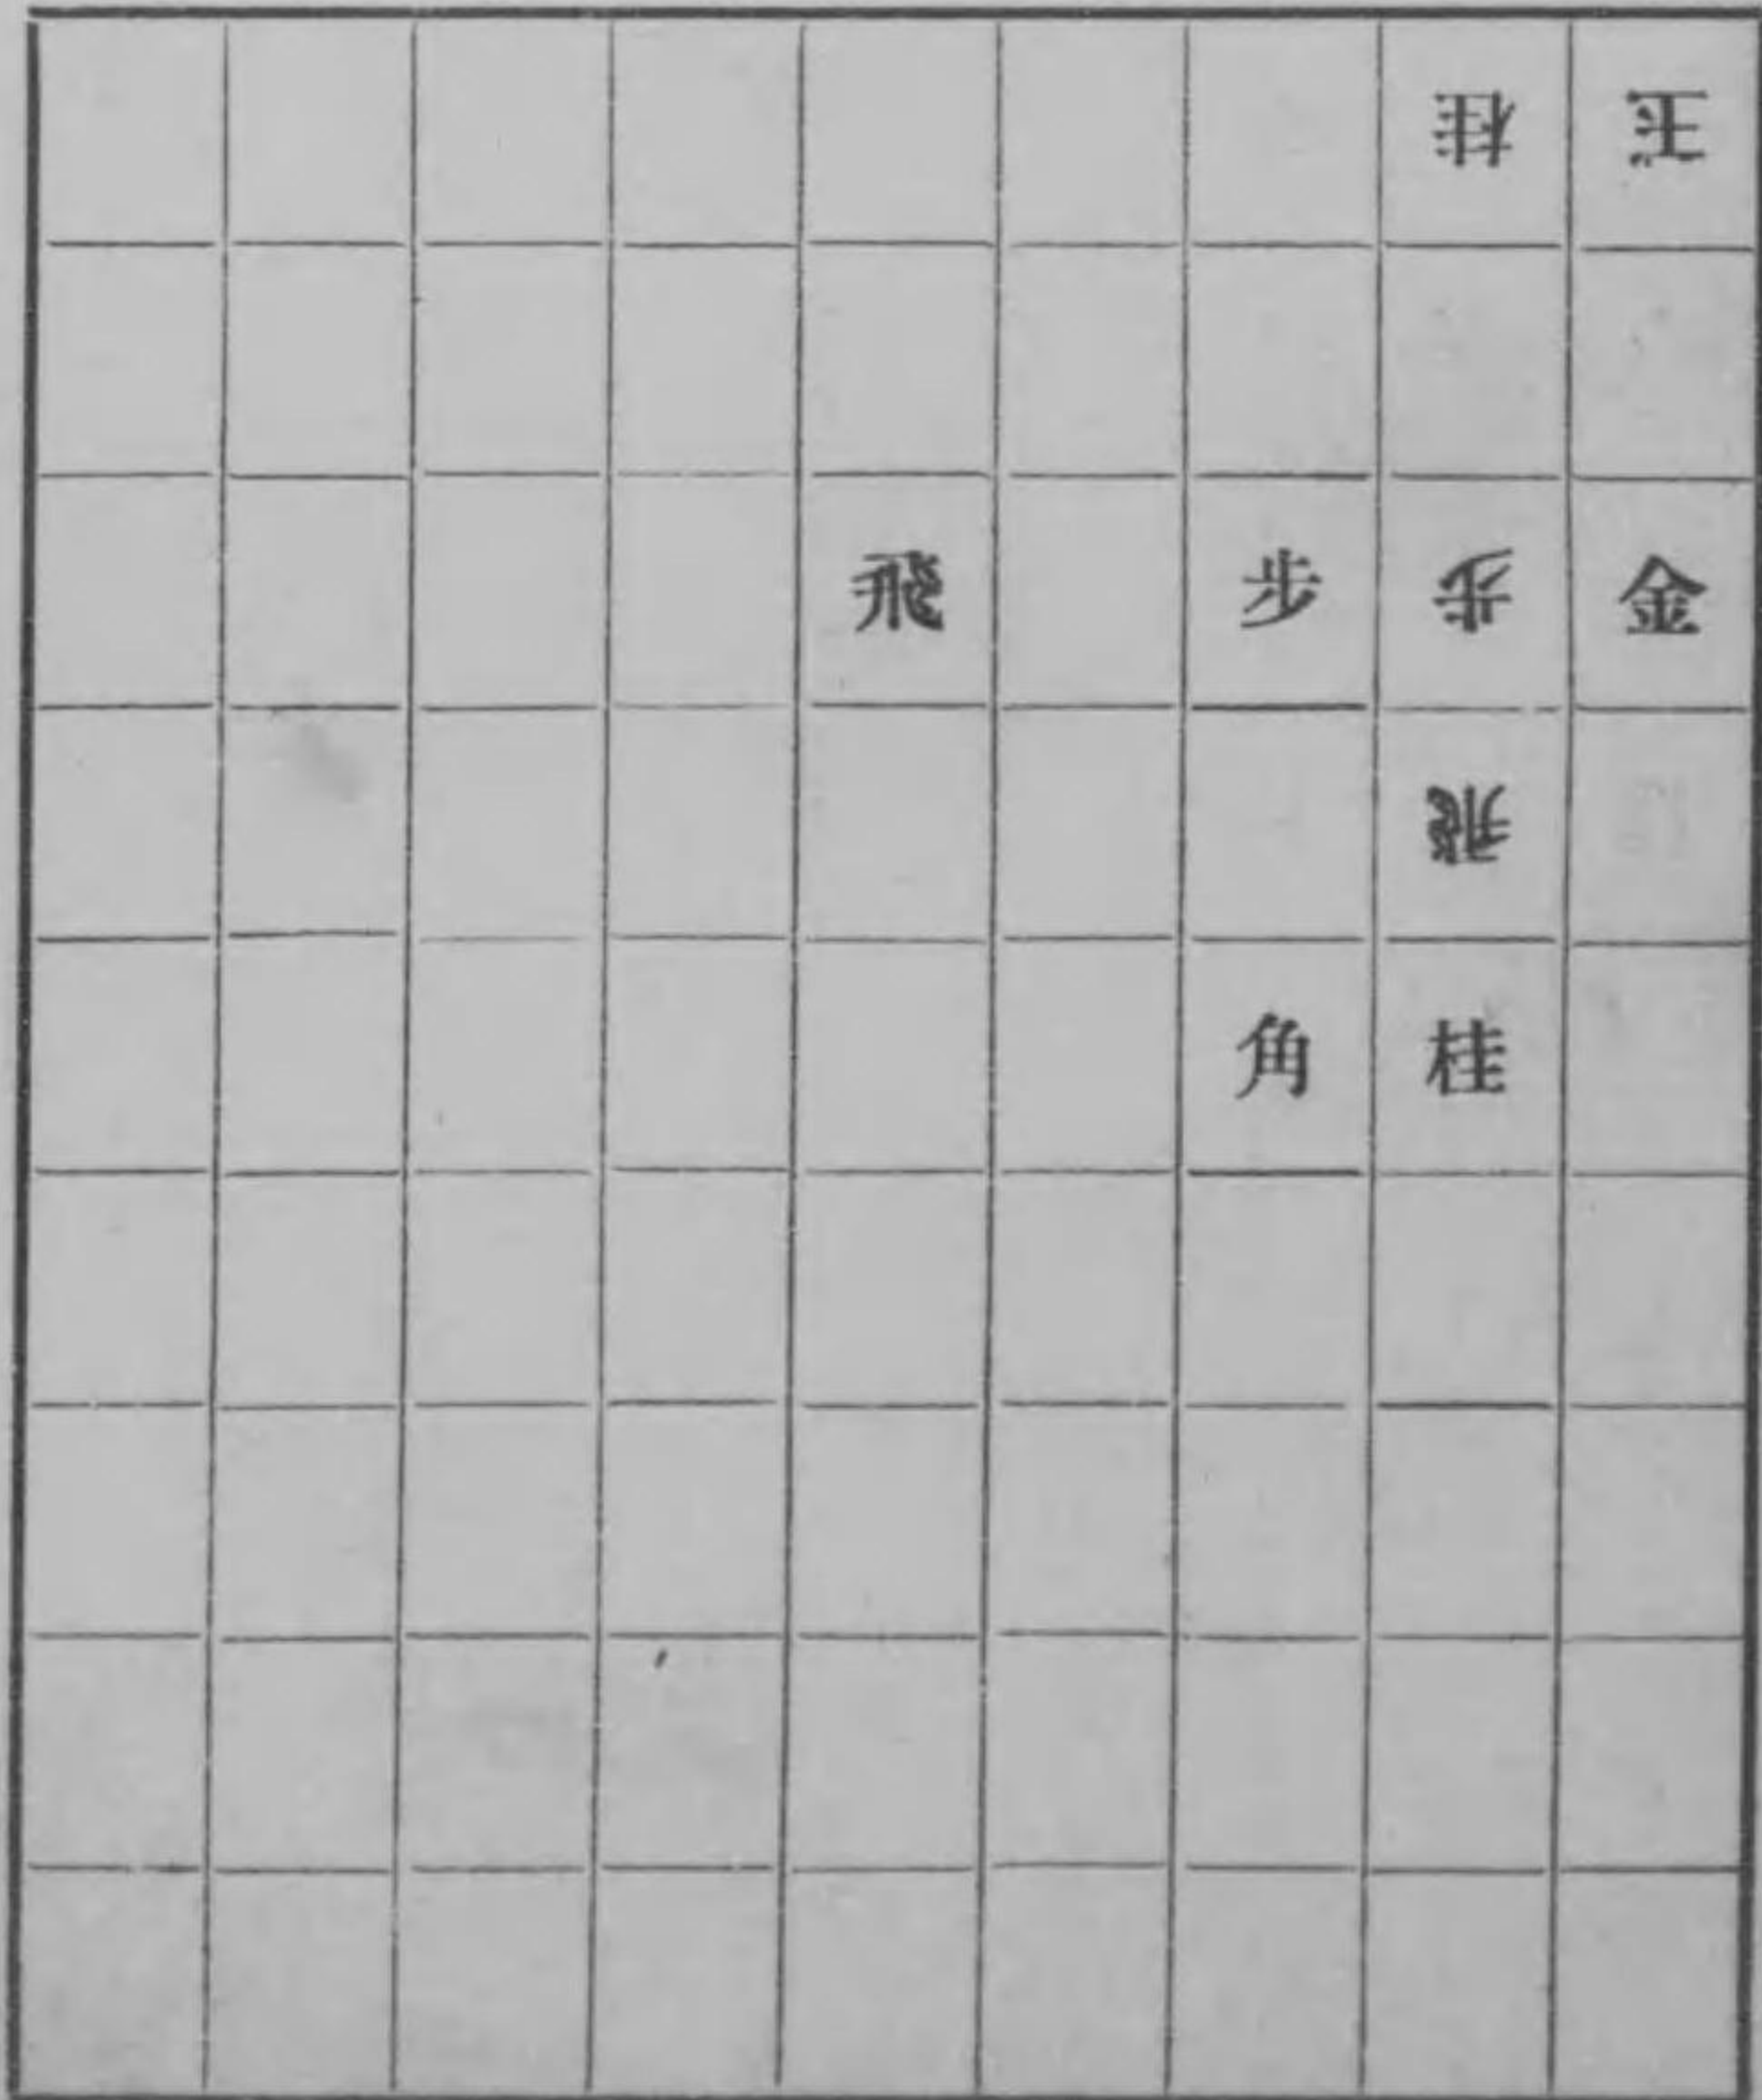 桂 玉
飛 步 步 金
飛
角 桂